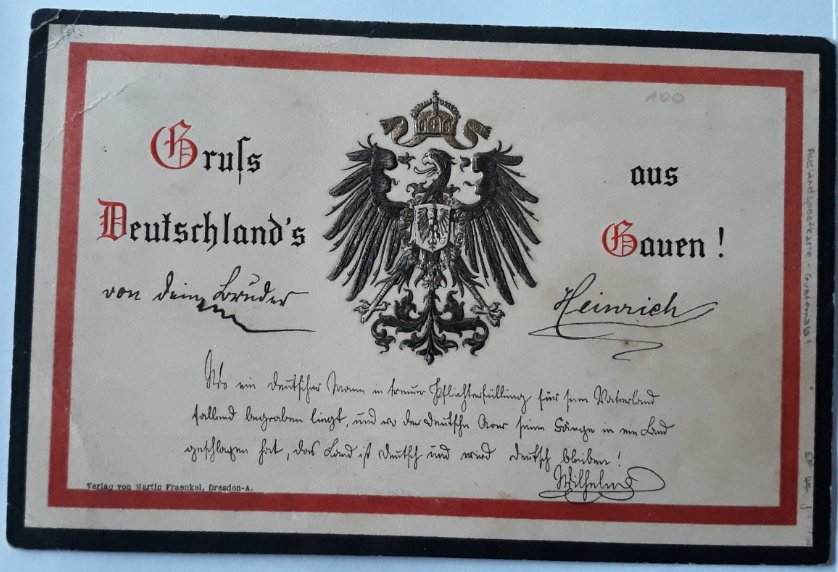 100
Gruſs aus
Deutschland's Gauen!
von dein Bruder Heinrich
Wo ein deutscher Mann in treuer Pflichterfüllung für sein Vaterland
fallend begraben liegt, und wo der deutsche Aar seine Fänge in ein Land
geschlagen hat, das Land ist deutsch und wird deutsch bleiben!
Wilhelm
Verlag von Martin Fraenkel, Dresden-A.
Auslandspostkarte - Guatemala!